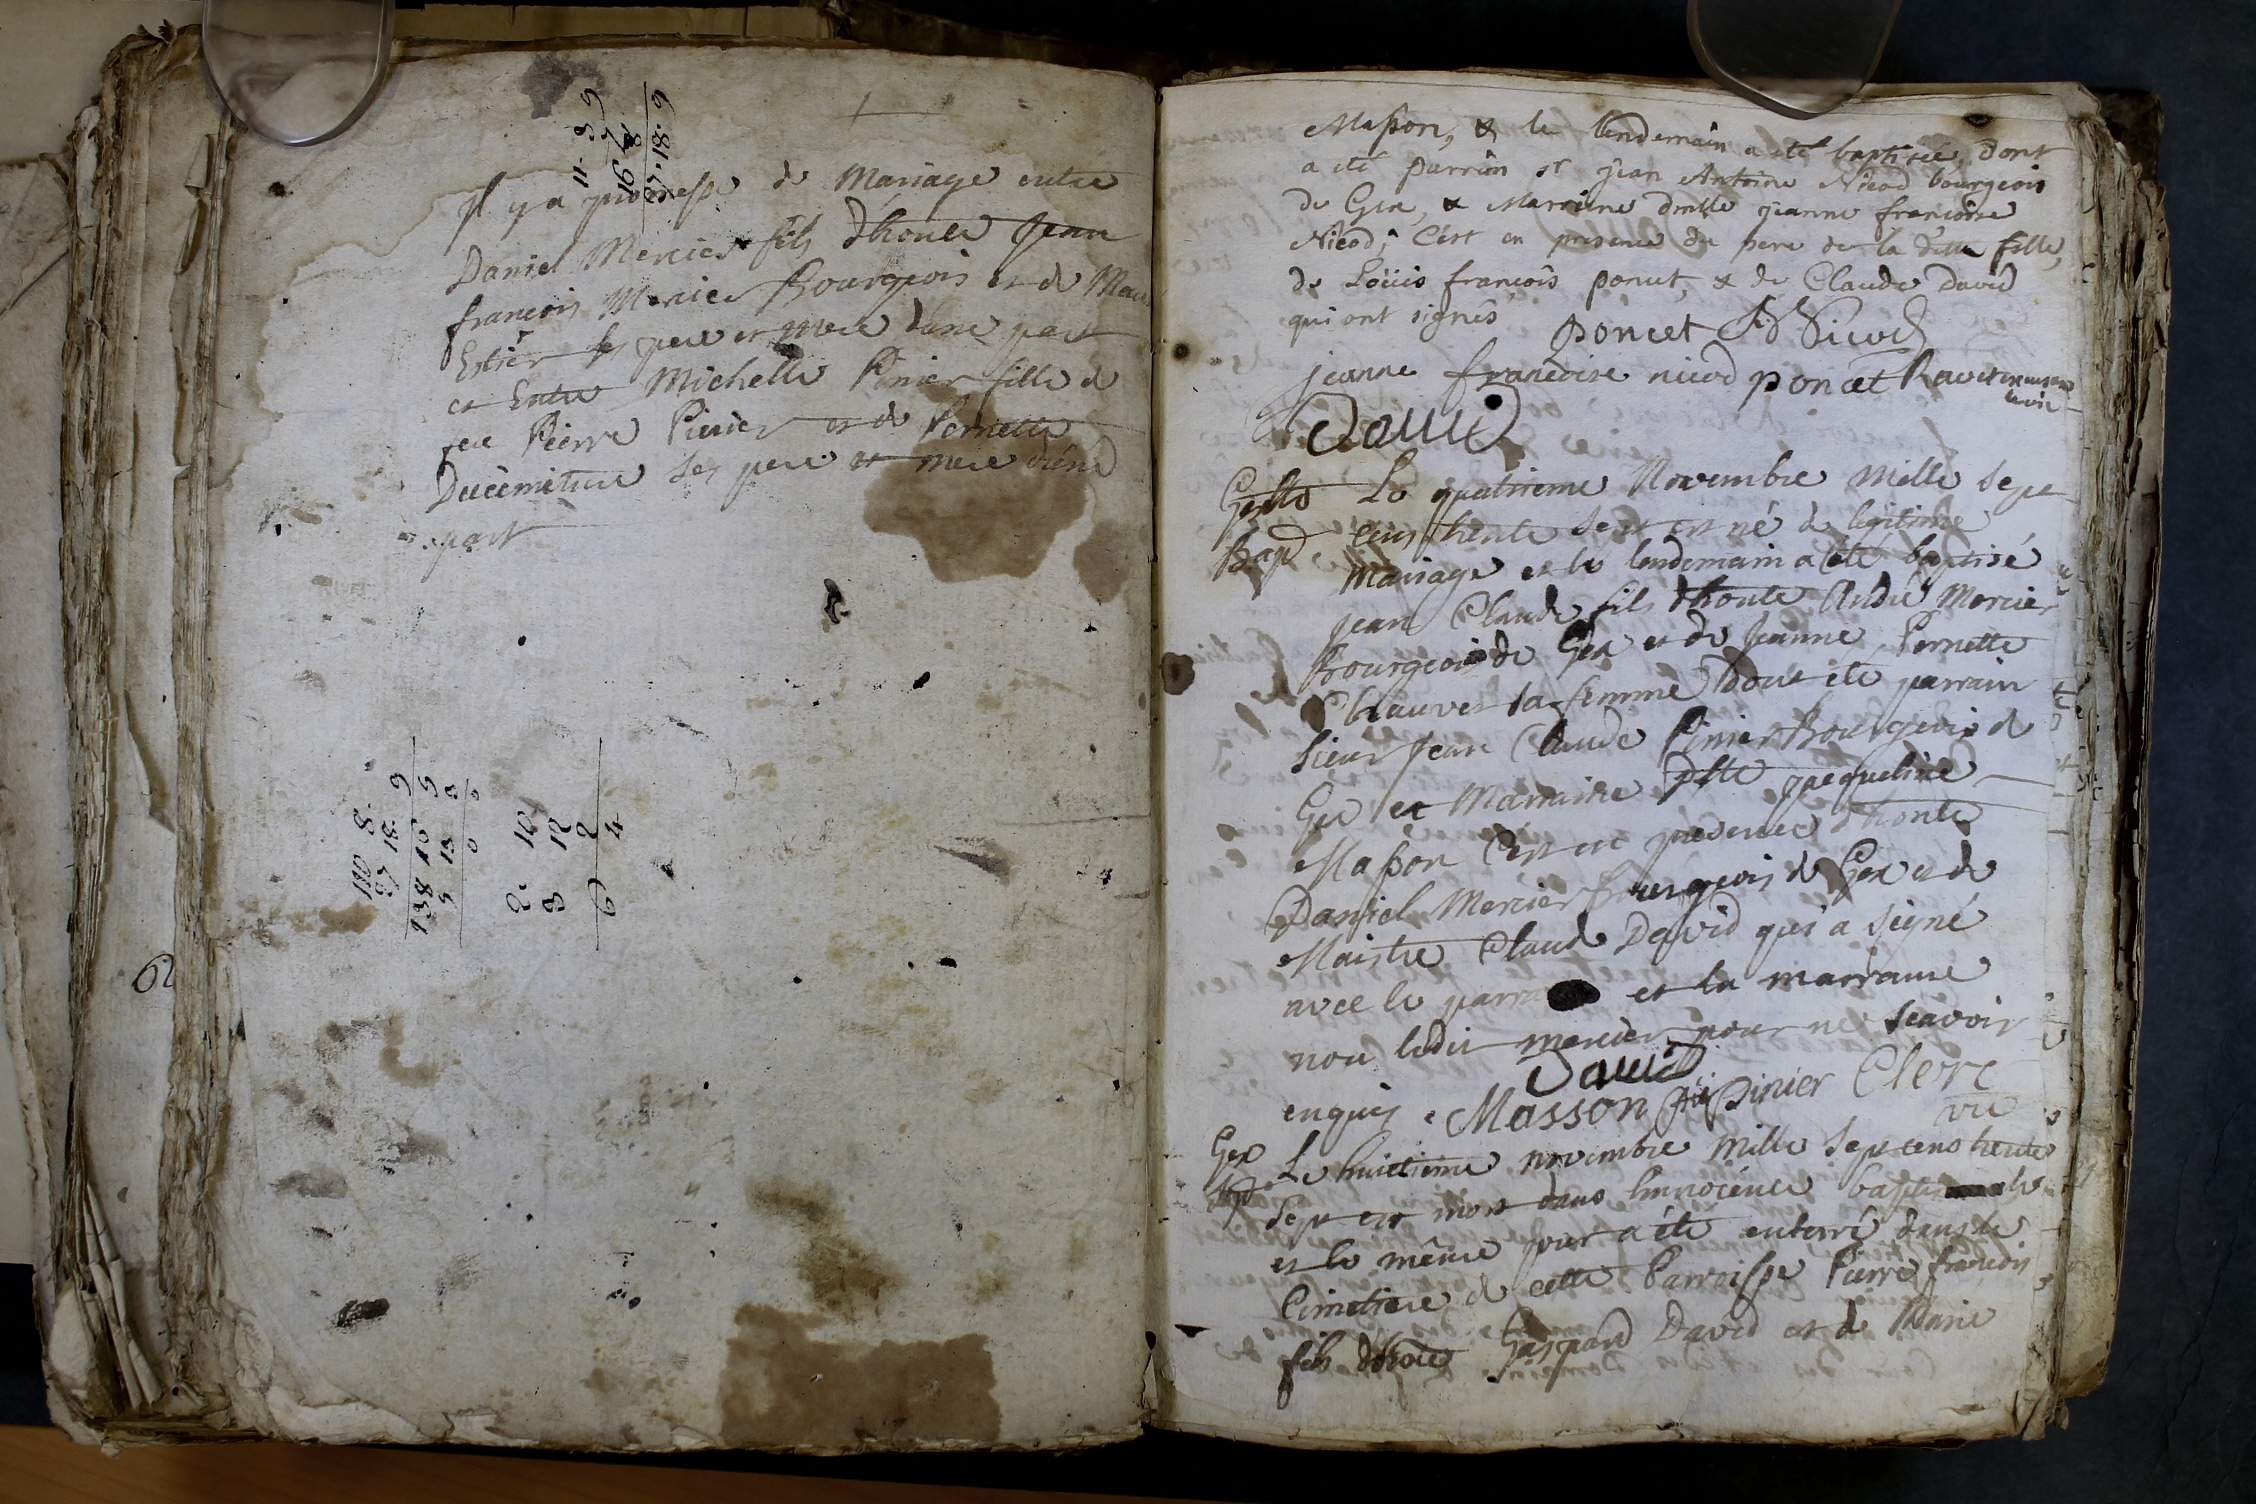 Il y a promesse de Mariage entre
Daniel Mercier fils d'honble Jean
francois Mercier Bourgeois et de
ses pere et mere dune part
et Entre Michelle Pinier fille de
feu Pierre Pinier et de Pernette
ses pere et mere d'une
part
11. 9 9
27. 18. 9
110 8.
27 18. 9
138 10 9
2. 10
8 12
2
6 4
Masson, & le lendemain a eté baptisée, dont
a eté parrain sr jean Antoine Nicod bourgeois
de Gex, & Marraine dmlle jeanne francoise
Nicod; C'est en presence du pere de la ditte fille,
de Loüis francois poncet, & de Claude David
qui ont signés
poncet Nicod
jeanne francoise nicod poncet Ravet
David
Gex Le quatrieme Novembre Mille sept
Bap. cens trente sept est né de legitime
Mariage et le lendemain a été baptisé
jean Claude fils d'honble André Mercier
Bourgeois de Gex et de Jeanne Pernette
Chauvet sa femme dont ete parrain
sieur Jean Claude Pinier Bourgeois de
Gex et Marraine dlle jacqueline
Masson C'est en presence d'honble
Daniel Mercier Bourgeois de Gex et de
Maistre Claude David qui a signé
avec le parrain et la marraine
non ledit mercier pour ne scavoir
David
enquis Masson pinier Clerc
vic
Gex Le huictieme novembre Mille sept cens trente
sept est mort dans l'innocence
et le même jour a été enterré dans le
Cimetiere de cette Parroisse Pierre francois
fils d'honble Gaspard David et de Marie